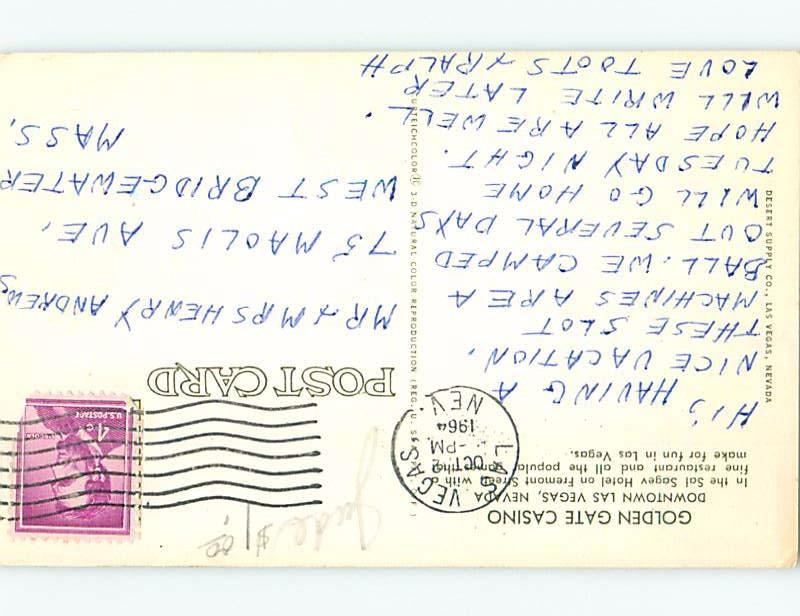 GOLDEN GATE CASINO
DOWNTOWN LAS VEGAS, NEVADA
In the Sal Sagev Hotel on Fremont Street with a
fine restaurant and all the popular games
make for fun in Las Vegas.
HI; HAVING A
NICE VACATION.
THESE SLOT
MACHINES ARE A
BALL. WE CAMPED
OUT SEVERAL DAYS
WILL GO HOME
TUESDAY NIGHT.
HOPE ALL ARE WELL.
WILL WRITE LATER
LOVE TOOTS & RALPH
DESERT SUPPLY CO., LAS VEGAS, NEVADA
CURTEICHCOLOR® 3-D NATURAL COLOR REPRODUCTION (REG. U.S.
LAS VEGAS
OCT 2
-PM
1964
NEV.
POST CARD
4¢
U.S. POSTAGE
MR & MRS HENRY ANDREWS
75 MAOLIS AVE,
WEST BRIDGEWATER
MASS,
Jude $1.00